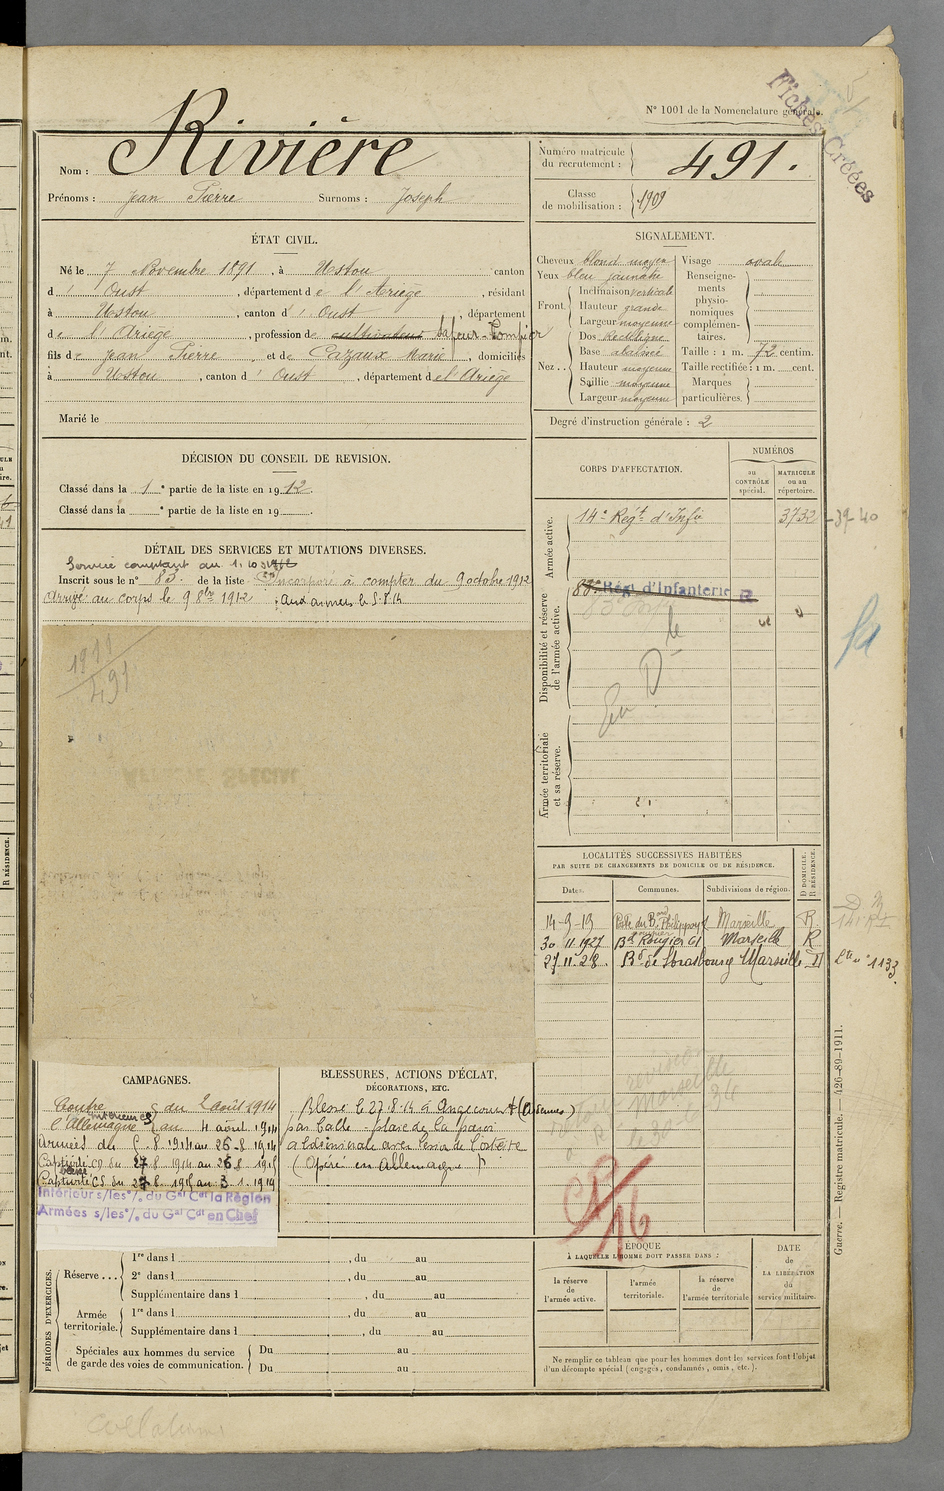 N° 1001 de la Nomenclature générale.
Fiches Créées
Nom : Rivière
Prénoms : Jean Pierre Surnoms : Joseph
Numéro matricule du recrutement : 491.
Classe de mobilisation : 1909
ÉTAT CIVIL.
Né le 7 Novembre 1891, à Ustou canton
d' Oust, département de l'Ariege, résidant
à Ustou, canton d' Oust, département
de l'Ariège, profession de cultivateur Sapeur-Pompier
fils de Jean Pierre et de Cazaux Marie, domiciliés
à Ustou, canton d' Oust, département de l'Ariège
Marié le
SIGNALEMENT.
Cheveux blond moyen
Yeux bleu jaunatre
Front. Inclinaison verticale
Hauteur grande
Largeur moyenne
Nez .. Dos Rectiligne
Base
Hauteur moyenne
Saillie moyenne
Largeur moyenne
Visage ovale
Renseignements physionomiques complémentaires.
Taille : 1 m. 72 centim.
Taille rectifiée : 1 m. cent.
Marques particulières.
Degré d'instruction générale : 2
DÉCISION DU CONSEIL DE REVISION.
Classé dans la 1e partie de la liste en 1912.
Classé dans la e partie de la liste en 19
DÉTAIL DES SERVICES ET MUTATIONS DIVERSES.
Service comptant du 1.10
Inscrit sous le n° 85 de la liste Incorporé à compter du 9 octobre 1912
Arrivé au corps le 9 8bre 1912 ; aux armées le 5.8.14
1911
491
CORPS D'AFFECTATION.
NUMÉROS
au CONTRÔLE spécial.
MATRICULE ou au répertoire.
Armée active.
14e Régt d'Infie 3732 - 39-40
Disponibilité et réserve de l'armée active.
Régt d'Infanterie R
En Dté
Armée territoriale et sa réserve.
LOCALITÉS SUCCESSIVES HABITÉES
PAR SUITE DE CHANGEMENTS DE DOMICILE OU DE RÉSIDENCE.
Dates. Communes. Subdivisions de région. D DOMICILE. R RÉSIDENCE.
14-9-19 Marseille R.
30 11 1927 Bd Rougier 61 Marseille R
27 11 28 Bd de Strasbourg Marseille D
1133
CAMPAGNES.
Contre l'Allemagne
Intérieur CS du 2 août 1914 au 4 août 1914
Armées du 5 8 1914 au 26 8 1914
Captivité CD du 27 8 1914 au 26 8 1915
Captivité CS du 27 8 1915 au 3 1 1919
Intérieur s/les o/ du Gal Cdt la Région
Armées s/les o/ du Gal Cdt en Chef
BLESSURES, ACTIONS D'ÉCLAT,
DÉCORATIONS, ETC.
Blessé le 27.8.14 à Angecourt (Ardennes)
par balle - plaie de la paroi
abdominale avec lésion de l'ostéite
(Opéré en Allemagne)
CP/16
PÉRIODES D'EXERCICES.
Réserve ... 1re dans l , du au
2e dans l , du au
Supplémentaire dans l , du au
Armée territoriale. 1re dans l , du au
Supplémentaire dans l , du au
Spéciales aux hommes du service de garde des voies de communication. Du au
Du au
ÉPOQUE
À LAQUELLE L'HOMME DOIT PASSER DANS :
la réserve de l'armée active.
l'armée territoriale.
la réserve de l'armée territoriale
DATE DE LA LIBÉRATION du service militaire.
Ne remplir ce tableau que pour les hommes dont les services font l'objet
d'un décompte spécial (engagés, condamnés, omis, etc.).
Guerre. — Registre matricule. — 426-89-1911.